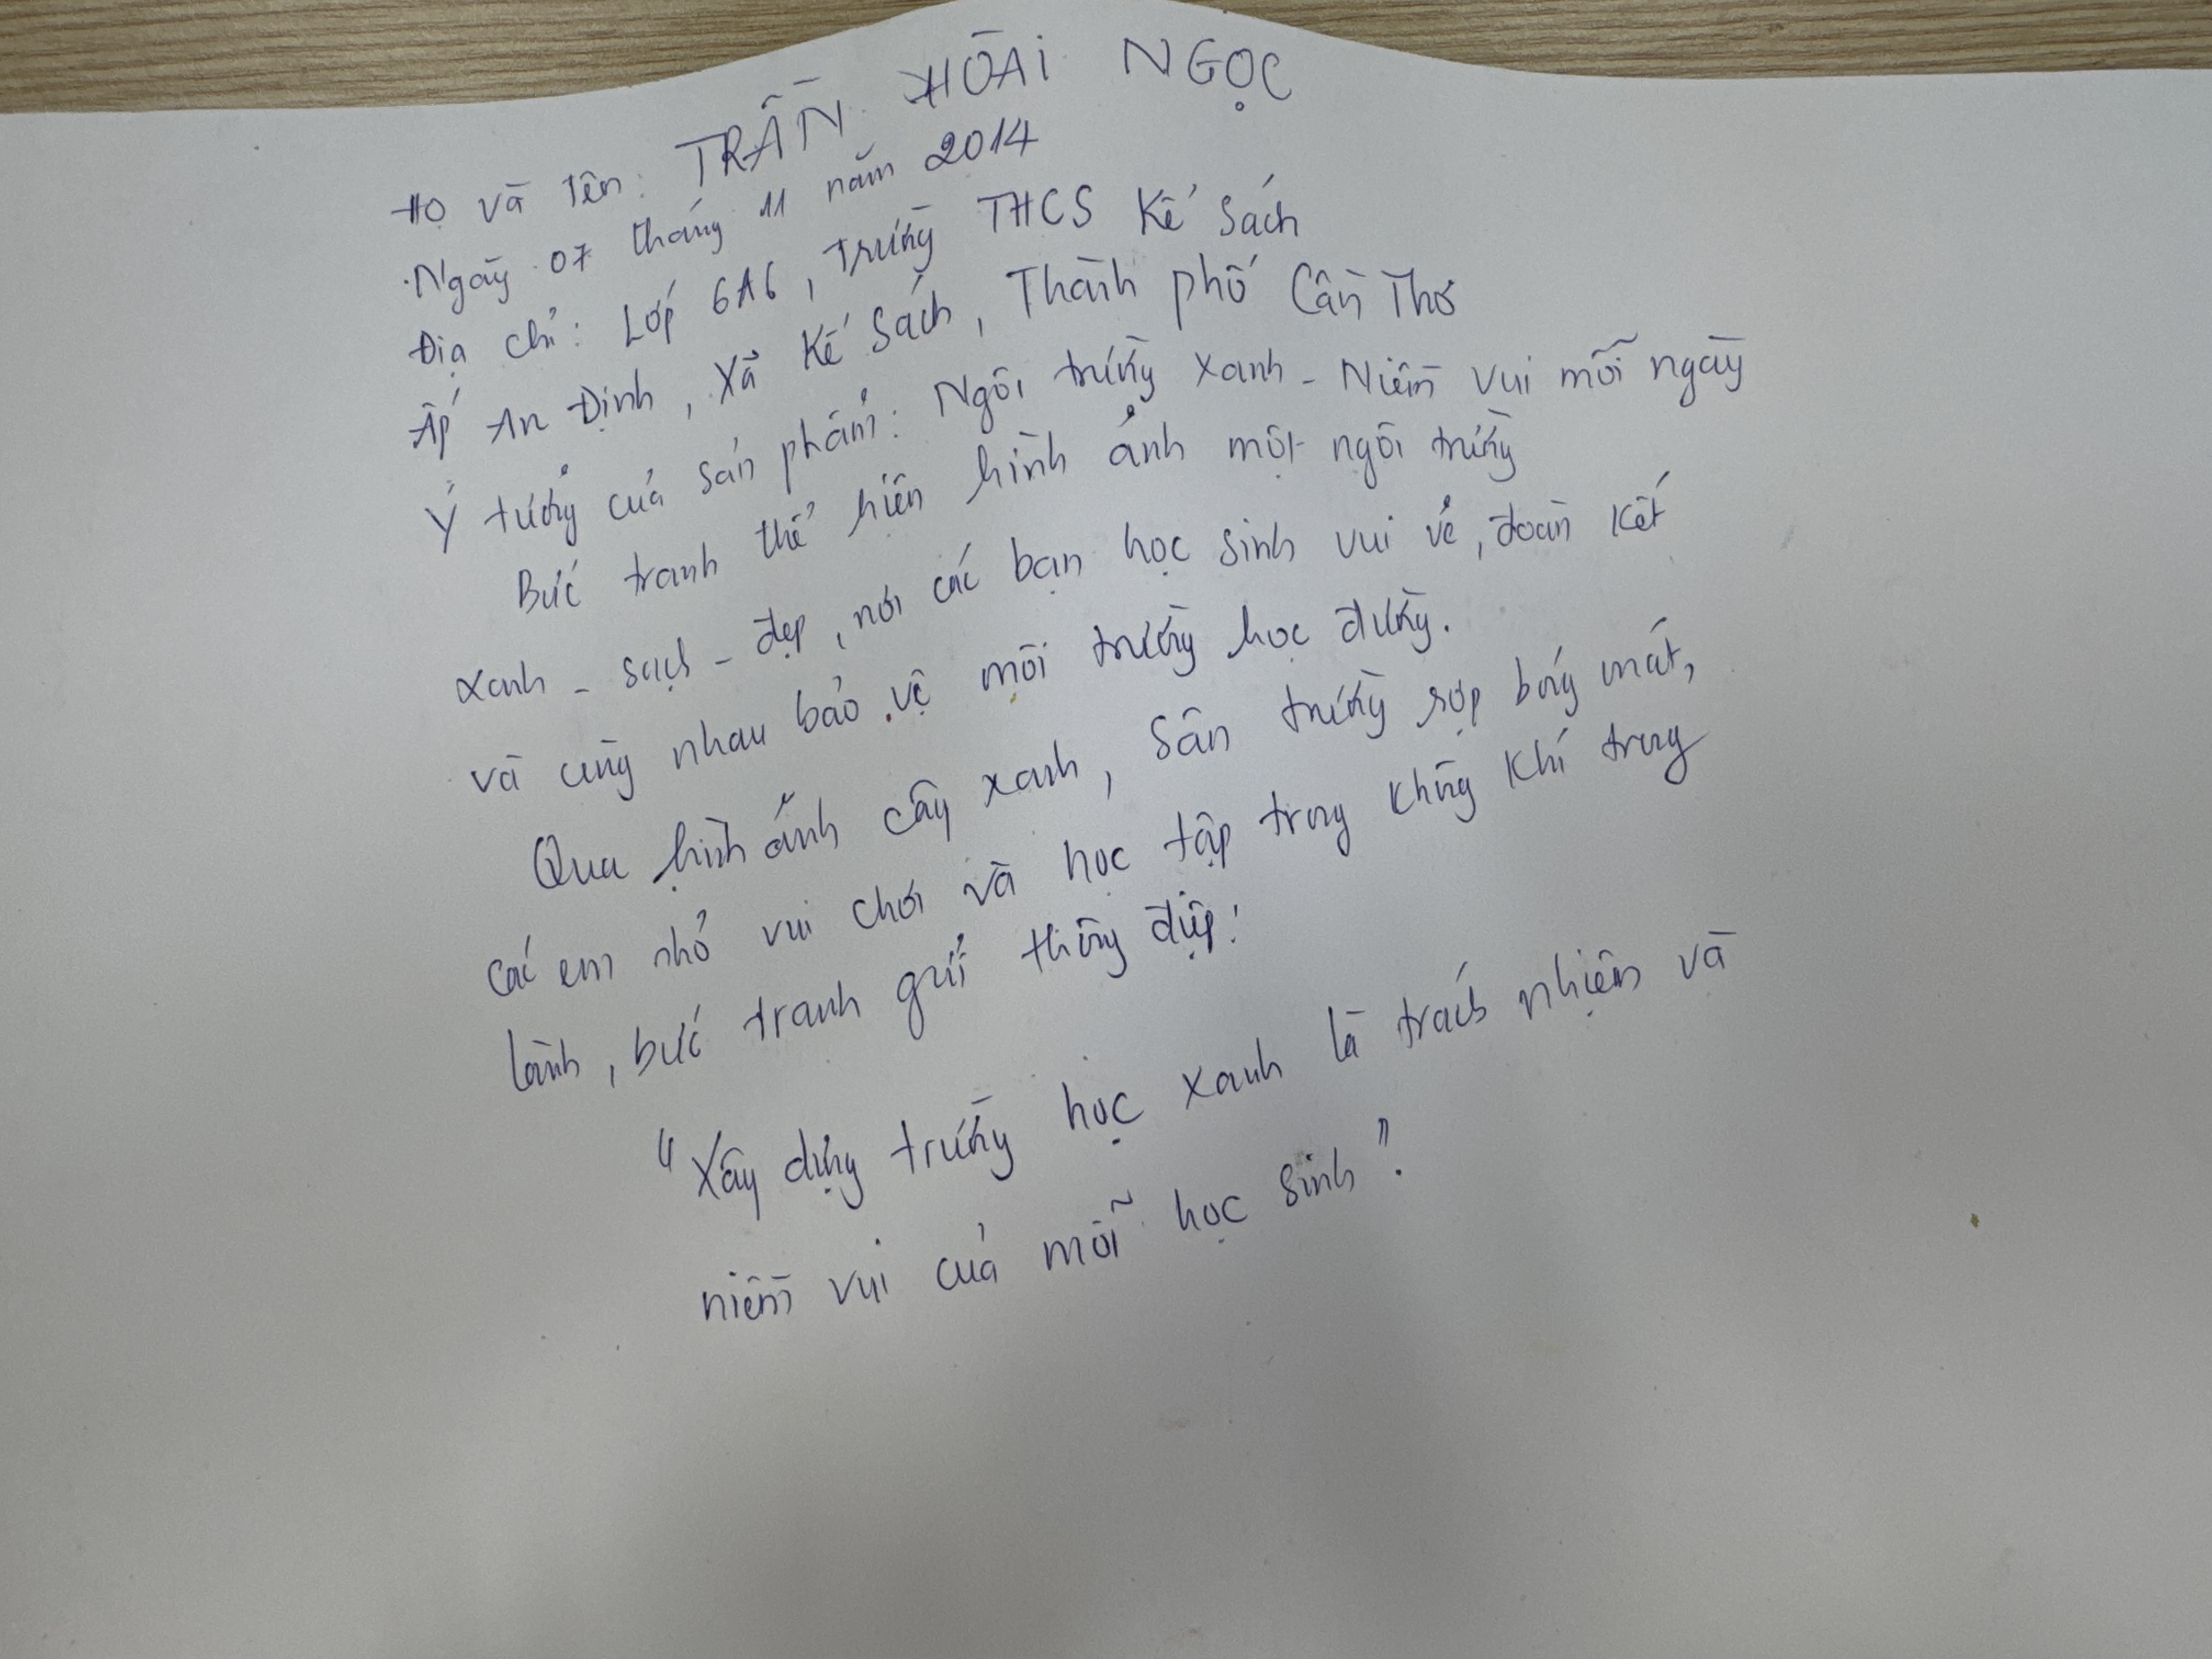 Họ và tên: TRẦN HOÀI NGỌC
Ngày 07 tháng 11 năm 2014
Địa chỉ: Lớp 6A6, trường THCS Kế Sách
Ấp An Định, Xã Kế Sách, Thành phố Cần Thơ
Ý tưởng của sản phẩm: Ngôi trường xanh - Niềm vui mỗi ngày
Bức tranh thể hiện hình ảnh một ngôi trường
xanh - sạch - đẹp, nơi các bạn học sinh vui vẻ, đoàn kết
và cùng nhau bảo vệ môi trường học đường.
Qua hình ảnh cây xanh, sân trường rợp bóng mát,
các em nhỏ vui chơi và học tập trong không khí trong
lành, bức tranh gửi thông điệp:
"Xây dựng trường học xanh là trách nhiệm và
niềm vui của mỗi học sinh".